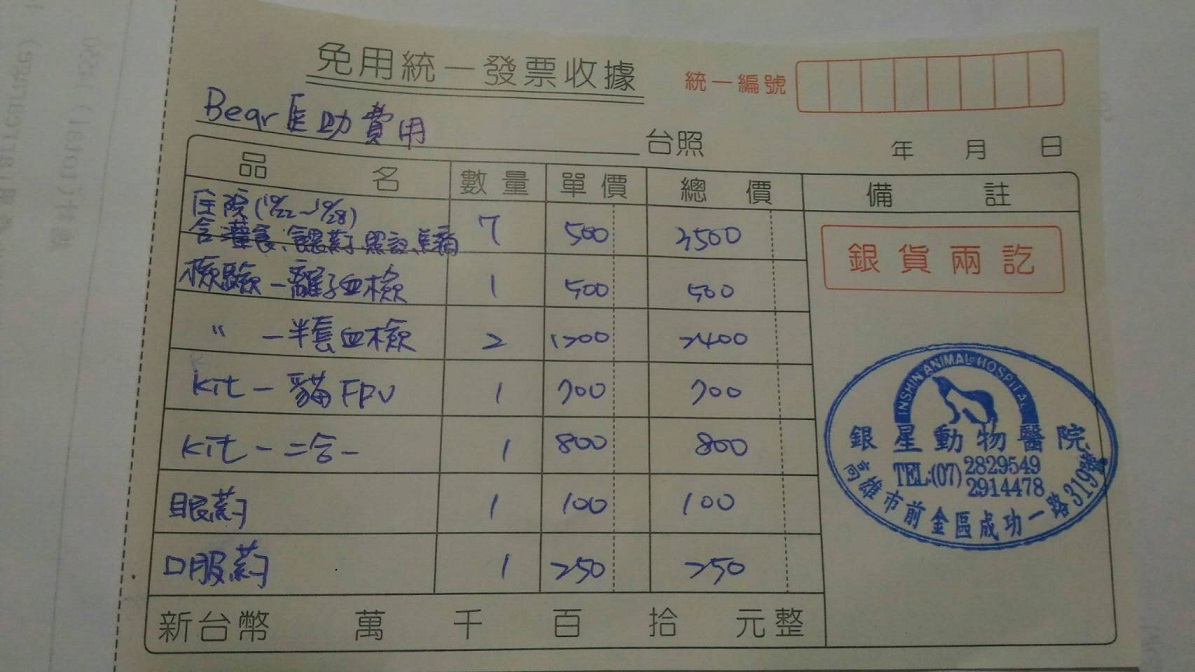 免用統一發票收據
統一編號
Bear 醫助費用
台照
年 月 日
品 名 數量 單價 總 價 備 註
住院(10/22~10/28) 7 500 3500
含灌食、餵葯、照護、點滴
檢驗-離子血檢 1 500 500
〃 -半套血檢 2 1200 2400
kit-貓FPV 1 700 700
kit-二合一 1 800 800
眼葯 1 100 100
口服葯 1 250 250
新台幣 萬 千 百 拾 元整
銀貨兩訖
INSHIN ANIMAL HOSPITAL
銀星動物醫院
TEL:(07) 2829549
2914478
高雄市前金區成功一路319號